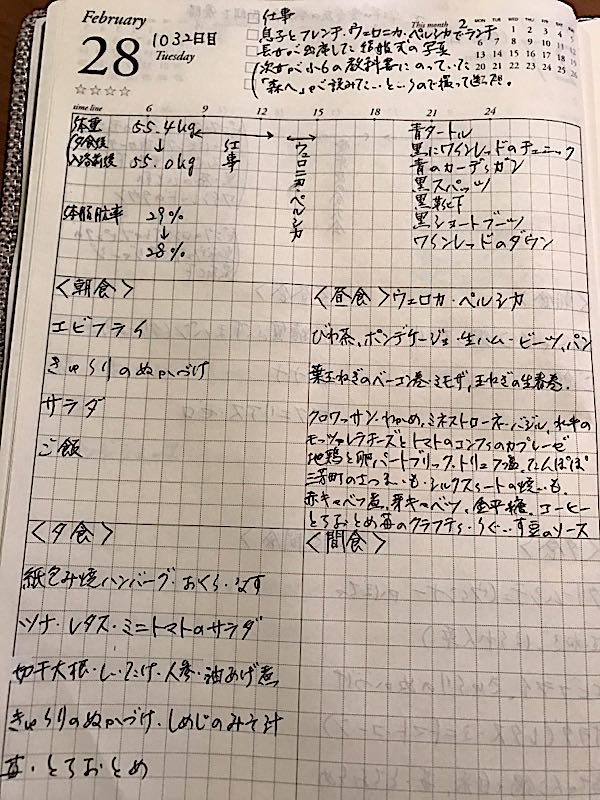 February
28
1032日目
Tuesday
☆☆☆☆
仕事
息子とフレンチ・ウェロニカ・ペルシカでランチ。
長女が出席した結婚式の写真
次女が小6の教科書にのっていた
「森へ」が読みたい、というので撮って送った。
This month 2
MON TUE WED THU FRI SAT SUN
1 2 3 4 5
6 7 8 9 10 11 12
13 14 15 16 17 18 19
20 21 22 23 24 25 26
time line 6 9 12 15 18 21 24
体重 55.4kg
夕食後 ↓
入浴前後 55.0kg
仕事
ウェロニカ・ペルシカ
体脂肪率 29%
↓
28%
青タートル
黒にワインレッドのチュニック
青のカーディガン
黒スパッツ
黒靴下
黒ショートブーツ
ワインレッドのダウン
<朝食>
エビフライ
きゅうりのぬかづけ
サラダ
ご飯
<昼食>ウェロカ・ペルシカ
びわ茶、ポンデケージョ・生ハム・ビーツ、パン
葉玉ねぎのベーコン巻・ミモザ、玉ねぎの生春巻・
クロワッサン・わかめ、ミネストローネ・バジル、水牛の
モッツァレラチーズとトマトのコンフィのカプレーゼ
地鶏と卵パートブリック、トリュフ塩、たんぽぽ
三芳町のさつまいも・シルクスイートの焼いも、
赤キャベツ煮、芽キャベツ、金平糖、コーヒー
とちおとめ苺のクラフティ・うぐいす豆のソース
<夕食>
紙包み焼ハンバーグ・おくら・なす
ツナ・レタス・ミニトマトのサラダ
切干大根・しいたけ・人参・油あげ煮
きゅうりのぬかづけ・しめじのみそ汁
苺・とちおとめ
<間食>